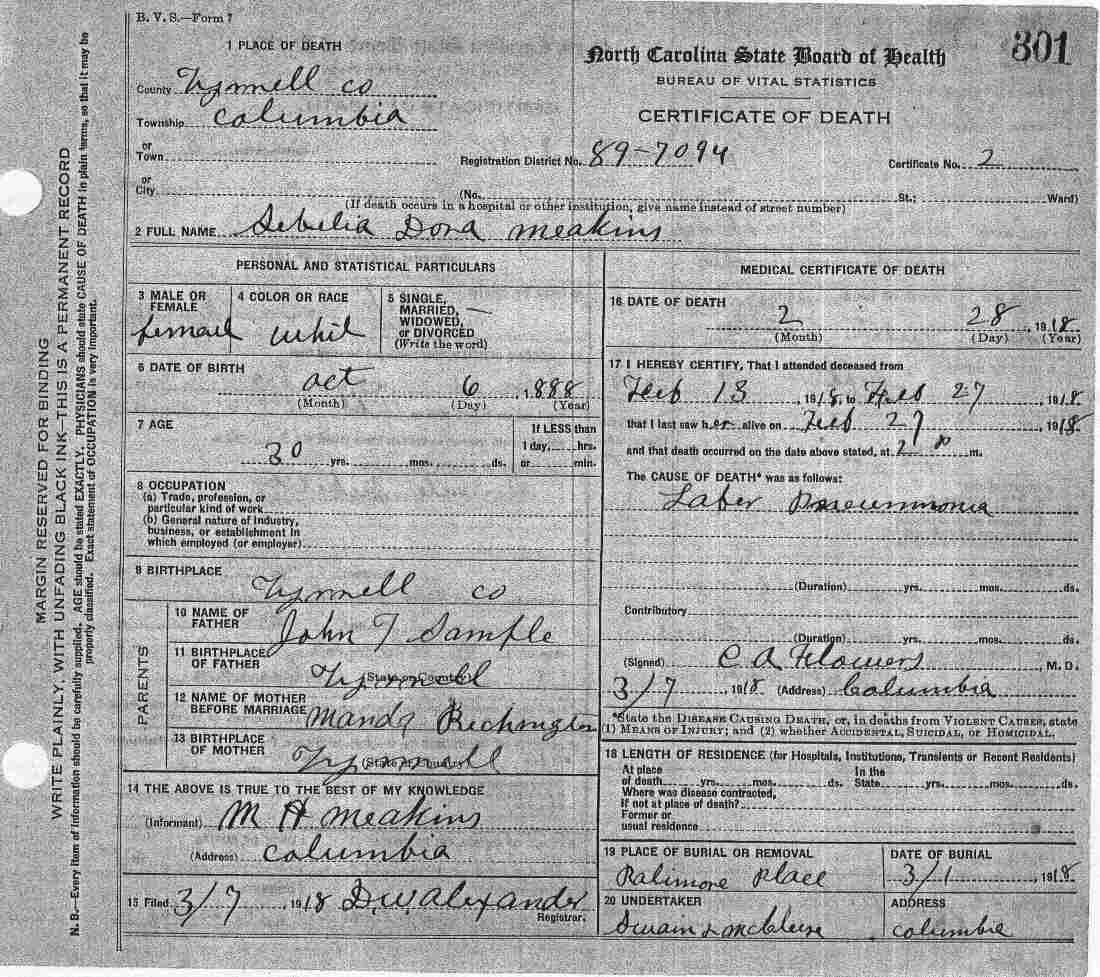 B. V. S.—Form 7
301
North Carolina State Board of Health
BUREAU OF VITAL STATISTICS
CERTIFICATE OF DEATH
1 PLACE OF DEATH
County Tyrrell co
Township columbia
or
Town
Registration District No. 89-7094
Certificate No. 2
or
City (No. St.; Ward)
(If death occurs in a hospital or other institution, give name instead of street number)
2 FULL NAME Sebelia Dora meakins
PERSONAL AND STATISTICAL PARTICULARS
3 MALE OR FEMALE
female
4 COLOR OR RACE
whit
5 SINGLE, MARRIED, WIDOWED, or DIVORCED
(Write the word)
6 DATE OF BIRTH
oct 6, 1888
(Month) (Day) (Year)
7 AGE
30 yrs. mos. ds.
If LESS than
1 day, hrs.
or min.
8 OCCUPATION
(a) Trade, profession, or
particular kind of work
(b) General nature of industry,
business, or establishment in
which employed (or employer)
9 BIRTHPLACE
Tyrrell co
PARENTS
10 NAME OF FATHER
John T Sample
11 BIRTHPLACE OF FATHER
(State or Country)
Tyrrell
12 NAME OF MOTHER BEFORE MARRIAGE
Manda
13 BIRTHPLACE OF MOTHER
(State or Country)
Tyrrell
14 THE ABOVE IS TRUE TO THE BEST OF MY KNOWLEDGE
(Informant) M H meakins
(Address) columbia
15 Filed 3/7 1918 D.W. Alexander
Registrar.
MEDICAL CERTIFICATE OF DEATH
16 DATE OF DEATH
2 28, 1918
(Month) (Day) (Year)
17 I HEREBY CERTIFY, That I attended deceased from
Feb 13, 1918, to Feb 27, 1918
that I last saw her alive on Feb 27, 1918
and that death occurred on the date above stated, at 2 m.
The CAUSE OF DEATH* was as follows:
Laber Pneumonia
(Duration) yrs. mos. ds.
Contributory
(Duration) yrs. mos. ds.
(Signed) C A Flowers, M.D.
3/7 1918 (Address) Columbia
*State the DISEASE CAUSING DEATH, or, in deaths from VIOLENT CAUSES, state
(1) MEANS OF INJURY; and (2) whether ACCIDENTAL, SUICIDAL, or HOMICIDAL.
18 LENGTH OF RESIDENCE (for Hospitals, Institutions, Transients or Recent Residents)
At place of death yrs. mos. ds. In the State yrs. mos. ds.
Where was disease contracted,
If not at place of death?
Former or
usual residence
19 PLACE OF BURIAL OR REMOVAL
place
DATE OF BURIAL
3/1 1918
20 UNDERTAKER
Swain &
ADDRESS
columbia
MARGIN RESERVED FOR BINDING
WRITE PLAINLY, WITH UNFADING BLACK INK—THIS IS A PERMANENT RECORD
N. B.—Every item of information should be carefully supplied. AGE should be stated EXACTLY. PHYSICIANS should state CAUSE OF DEATH in plain terms, so that it may be
properly classified. Exact statement of OCCUPATION is very important.